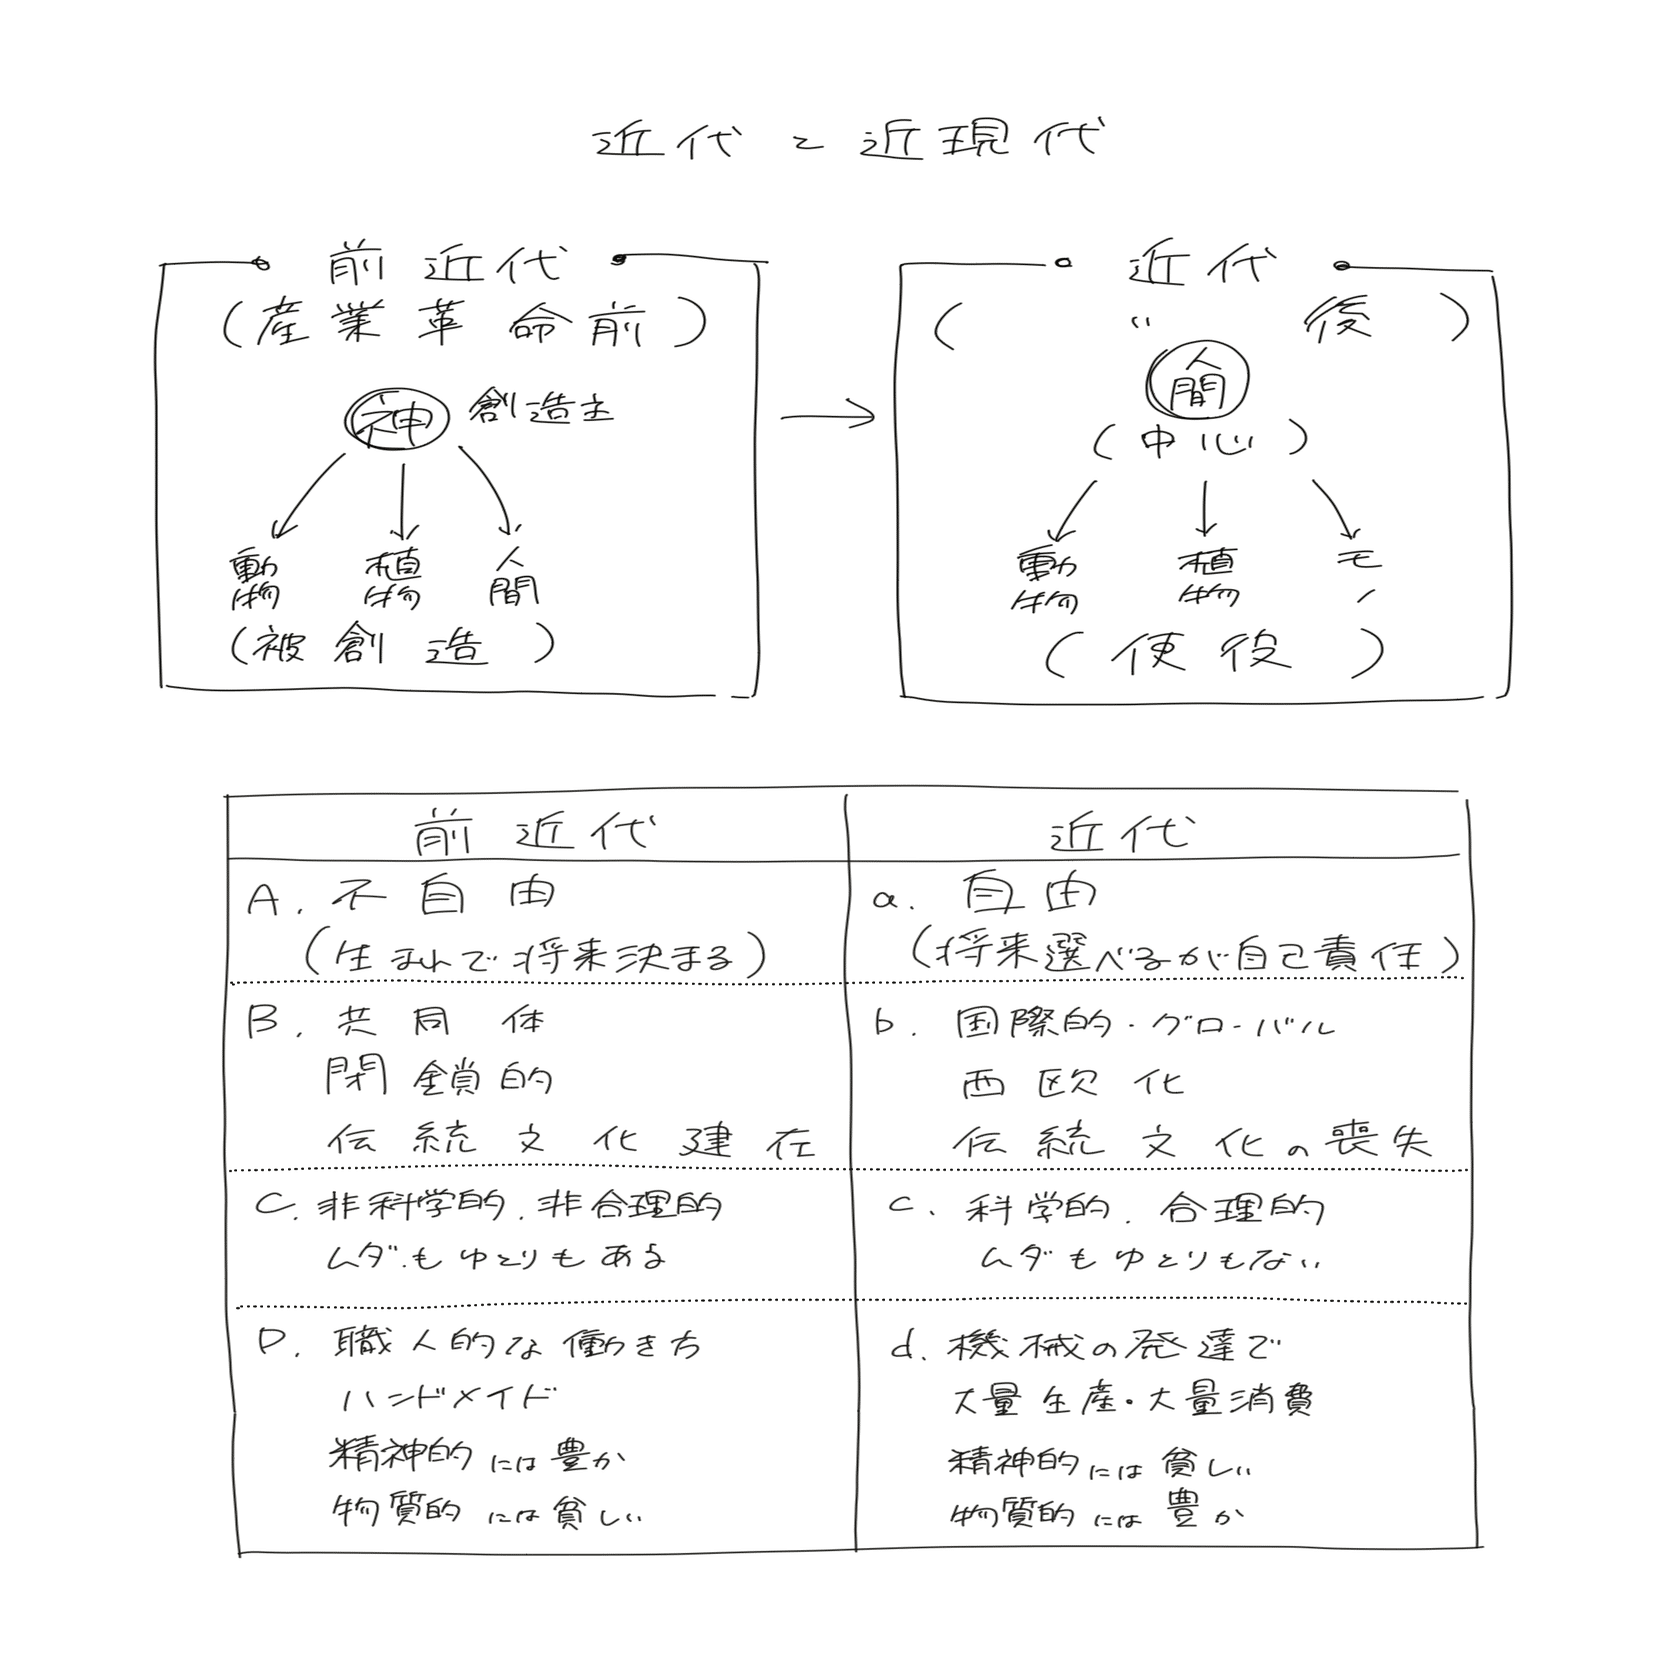 近代と近現代
前近代
(産業革命前)
神 創造主
動物 植物 人間
(被創造)
近代
( 〃 後 )
人間
(中心)
動物 植物 モノ
(使役)
前近代 近代
A. 不自由
(生まれで将来決まる)
a. 自由
(将来選べるが自己責任)
B. 共同体
閉鎖的
伝統文化建在
b. 国際的・グローバル
西欧化
伝統文化の喪失
C. 非科学的、非合理的
ムダもゆとりもある
c. 科学的、合理的
ムダもゆとりもない
D. 職人的な働き方
ハンドメイド
精神的には豊か
物質的には貧しい
d. 機械の発達で
大量生産・大量消費
精神的には貧しい
物質的には豊か